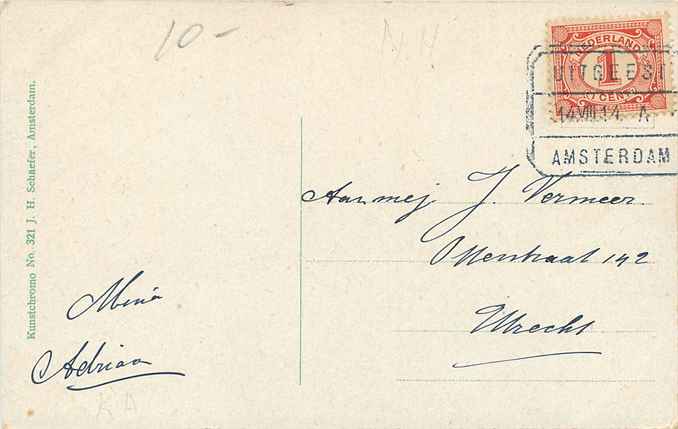 10-
NH
NEDERLAND
1
CENT
UITGEEST
14.VIII.14. A
AMSTERDAM
Aan mej J. Vermeer
Otterstraat 142
Utrecht
Mina
Adriaa
KA
Kunstchromo No. 321 J. H. Schaefer, Amsterdam.